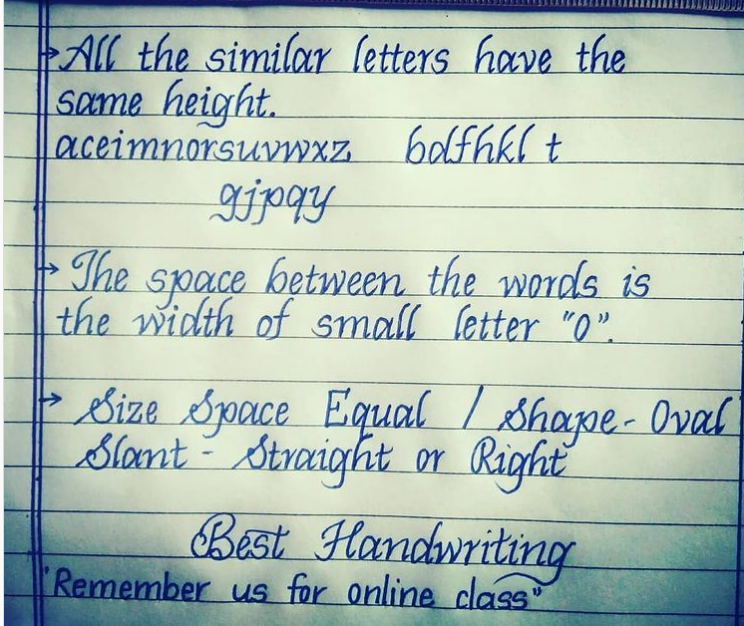 → All the similar letters have the
same height.
aceimnorsuvwxz bdfhkl t
gjpqy
→ The space between the words is
the width of small letter "o".
→ Size Space Equal / Shape - Oval
Slant - Straight or Right
Best Handwriting
"Remember us for online class"